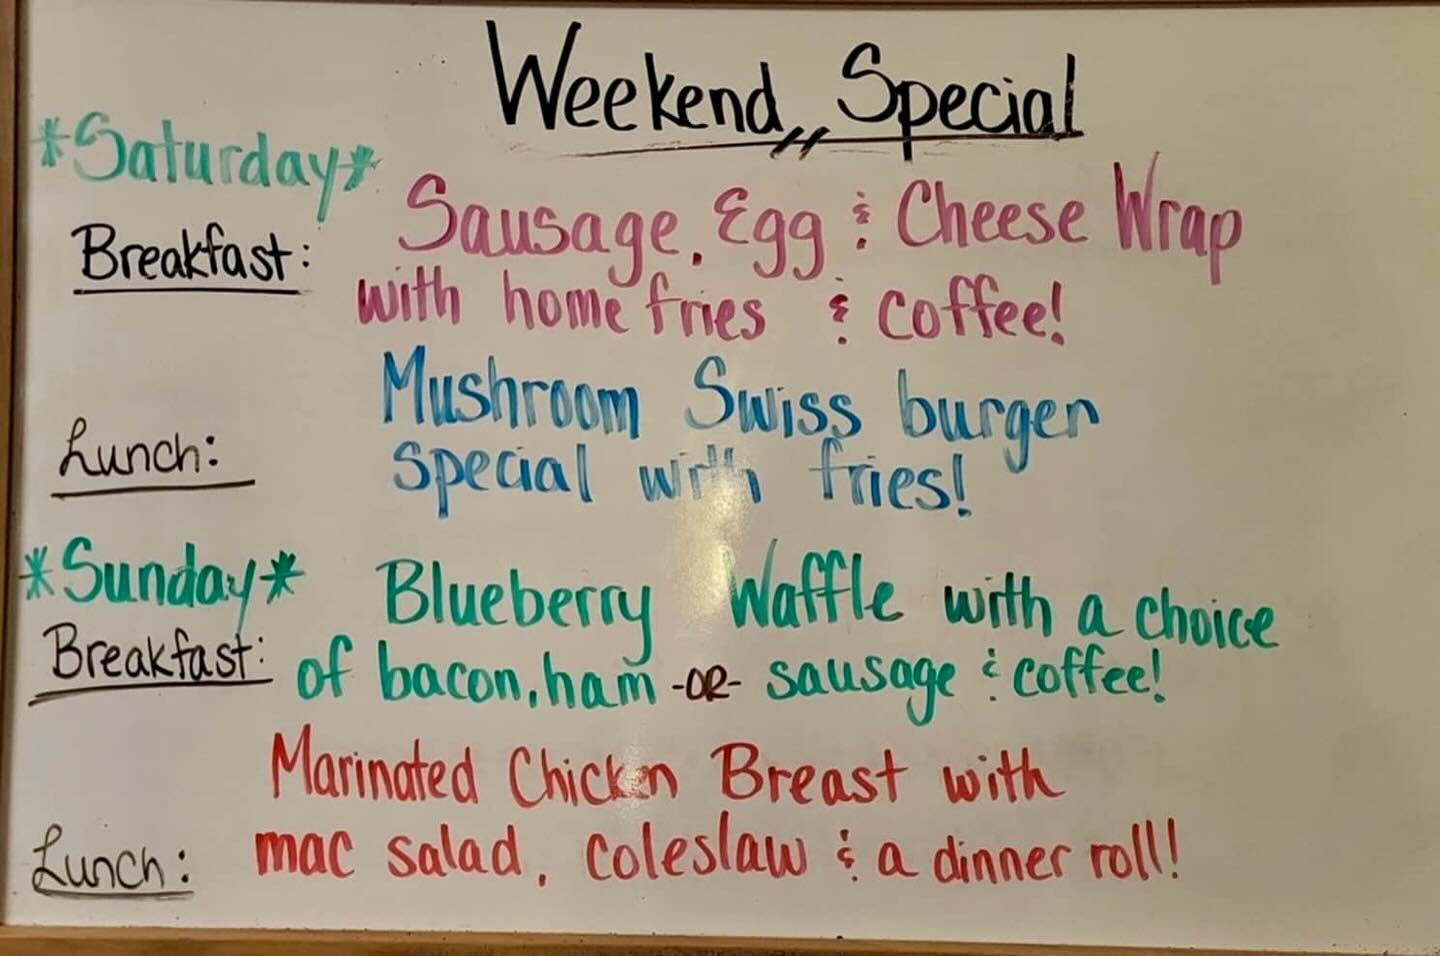 Weekend Special
*Saturday*
Breakfast: Sausage, Egg & Cheese Wrap
with home fries & coffee!
Lunch: Mushroom Swiss burger
special with fries!
*Sunday*
Breakfast: Blueberry Waffle with a choice
of bacon, ham -OR- sausage & coffee!
Lunch: Marinated Chicken Breast with
mac salad, coleslaw & a dinner roll!